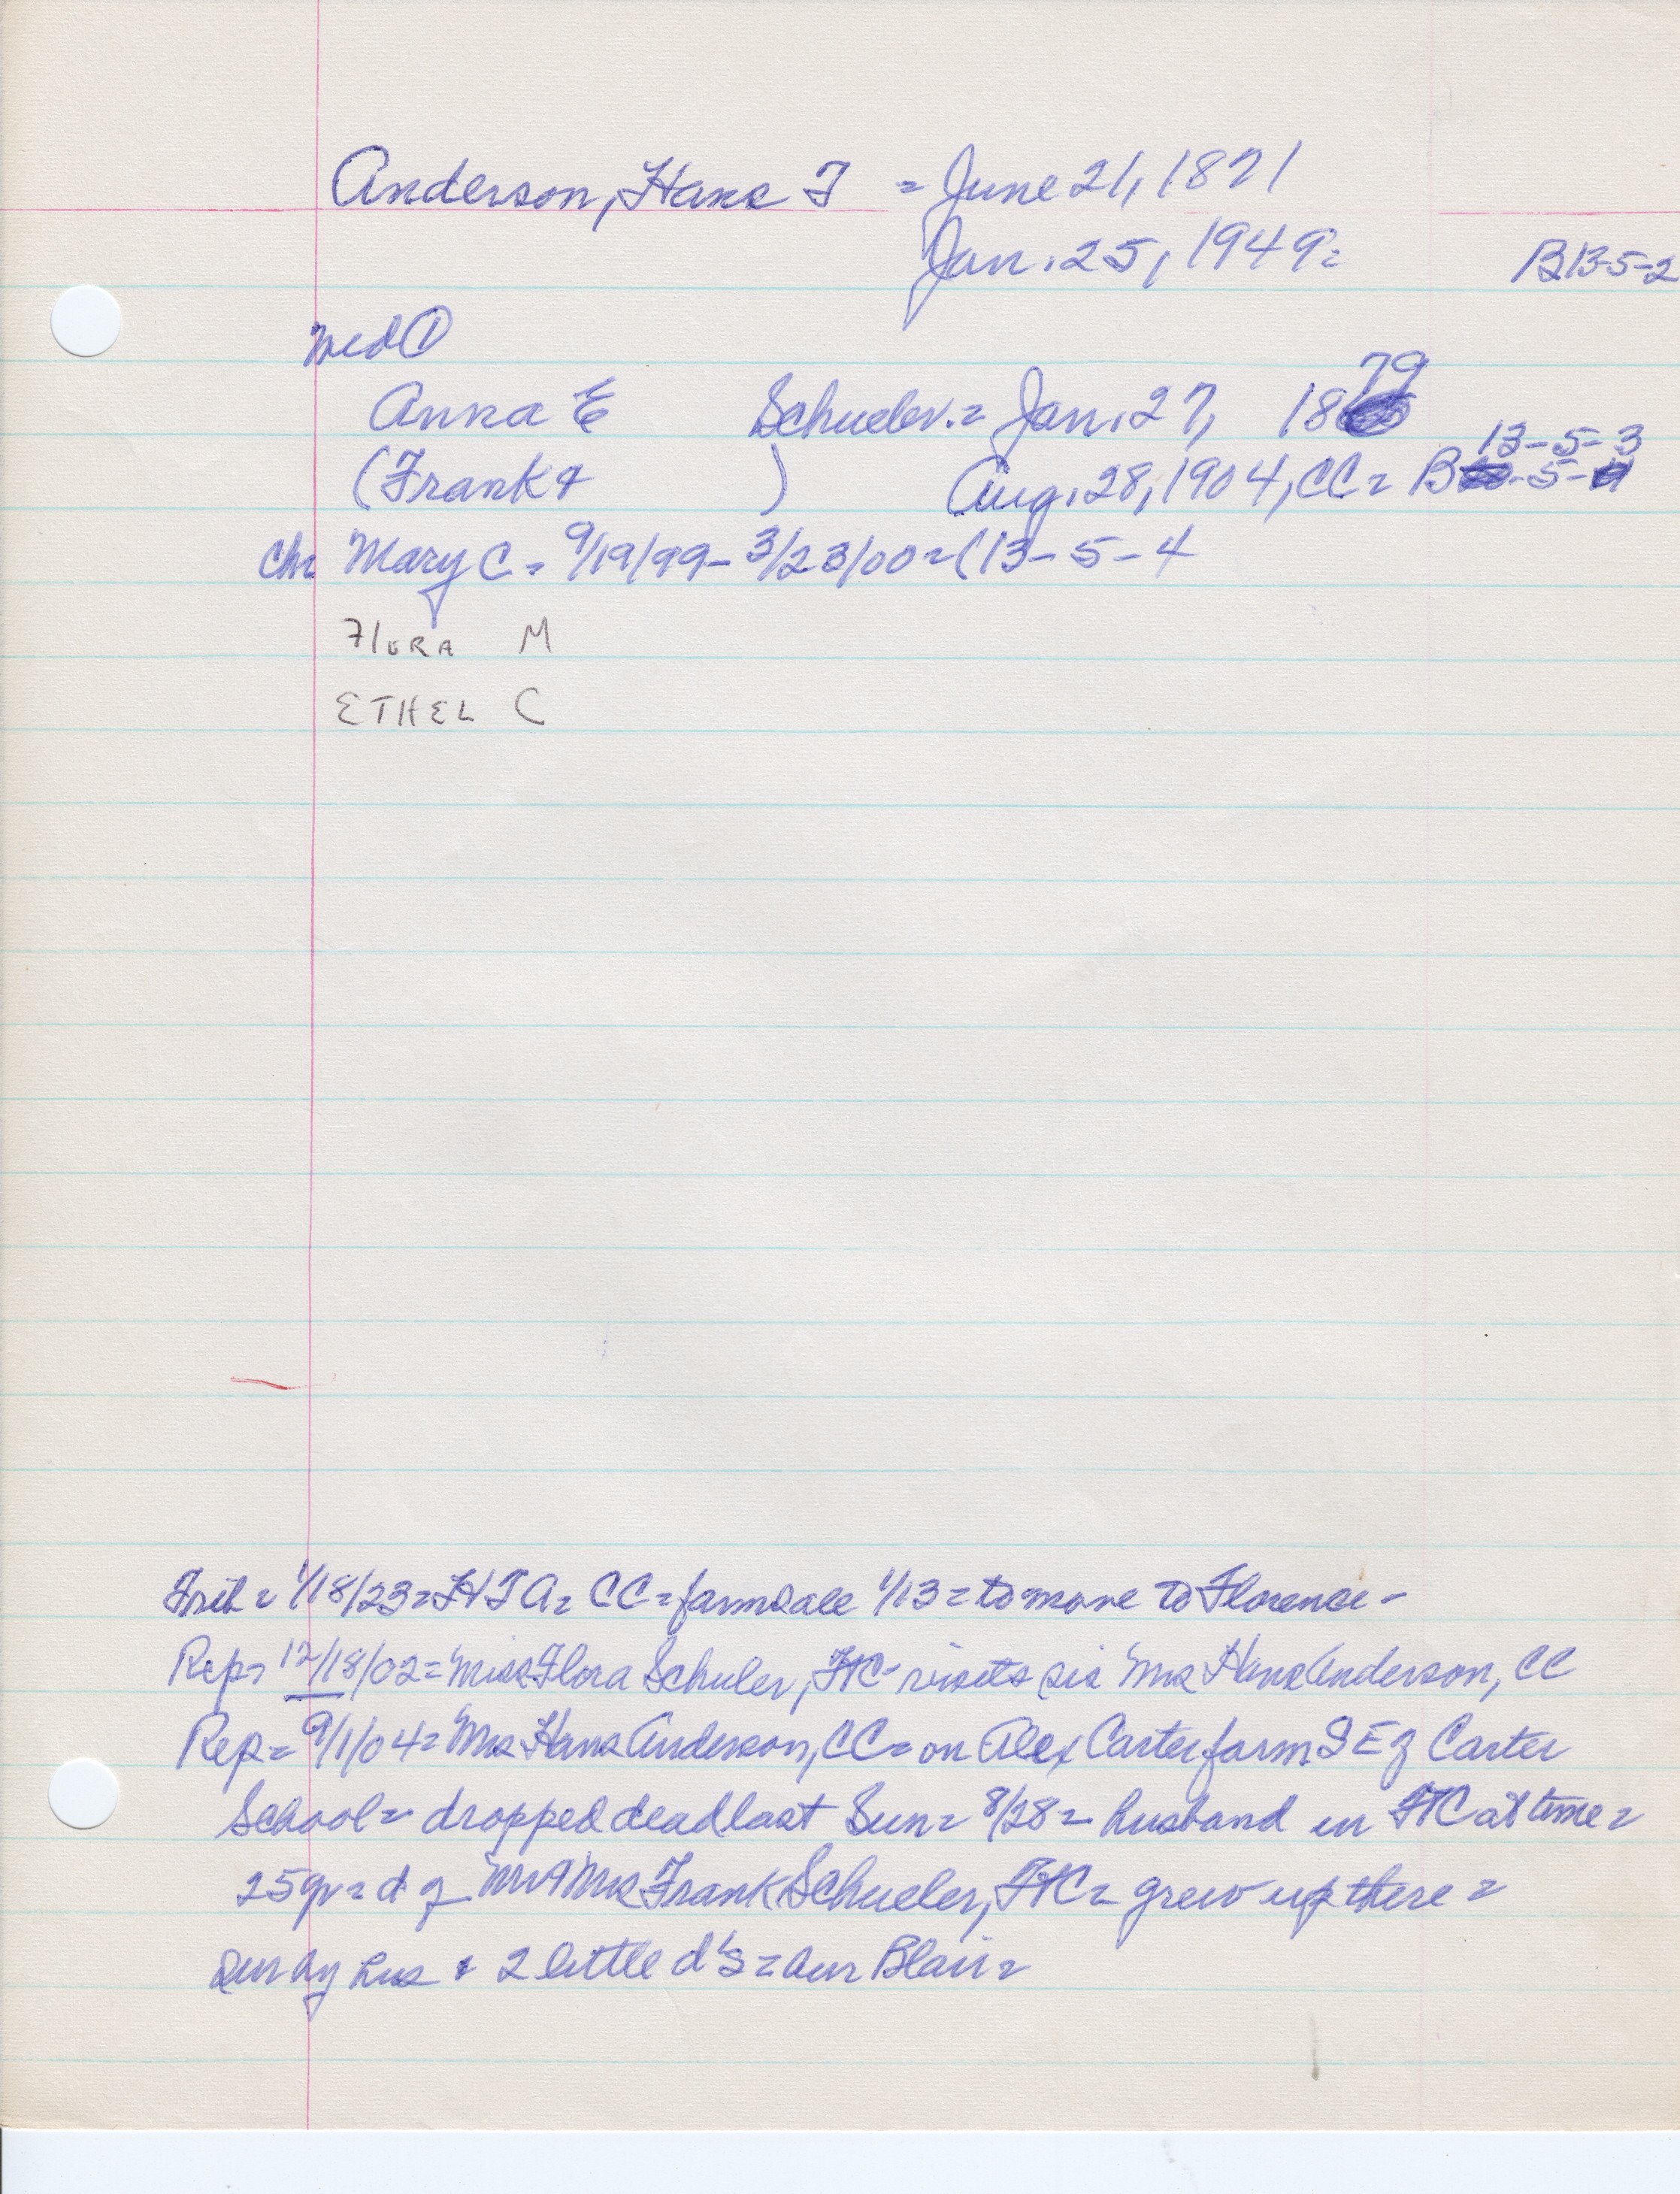 Anderson, Hans T = June 21, 1871
Jan. 25, 1949 =
B13-5-2
med ①
79
Anna E Schueler. = Jan. 27, 18
13-5-3
(Frank & ) Aug. 28, 1904, CC = B -5-
Ch = Mary C = 9/19/99 - 3/23/00 = (13-5-4
FLORA M
ETHEL C
1/18/23 = HTA = CC = farm sale 1/13 = to move to Florence -
Rep = 12/18/02 = Miss Flora Schuler, FtC - visits sis Mrs Hans Anderson, CC
Rep = 9/1/04 = Mrs Hans Anderson, CC = on Alex Carter farm SE of Carter
School = dropped dead last Sun = 8/28 = husband in FtC at time =
25 yr = d of Mr & Mrs Frank Schueler, FtC = grew up there =
sur by hus & 2 little d's = bur Blair =